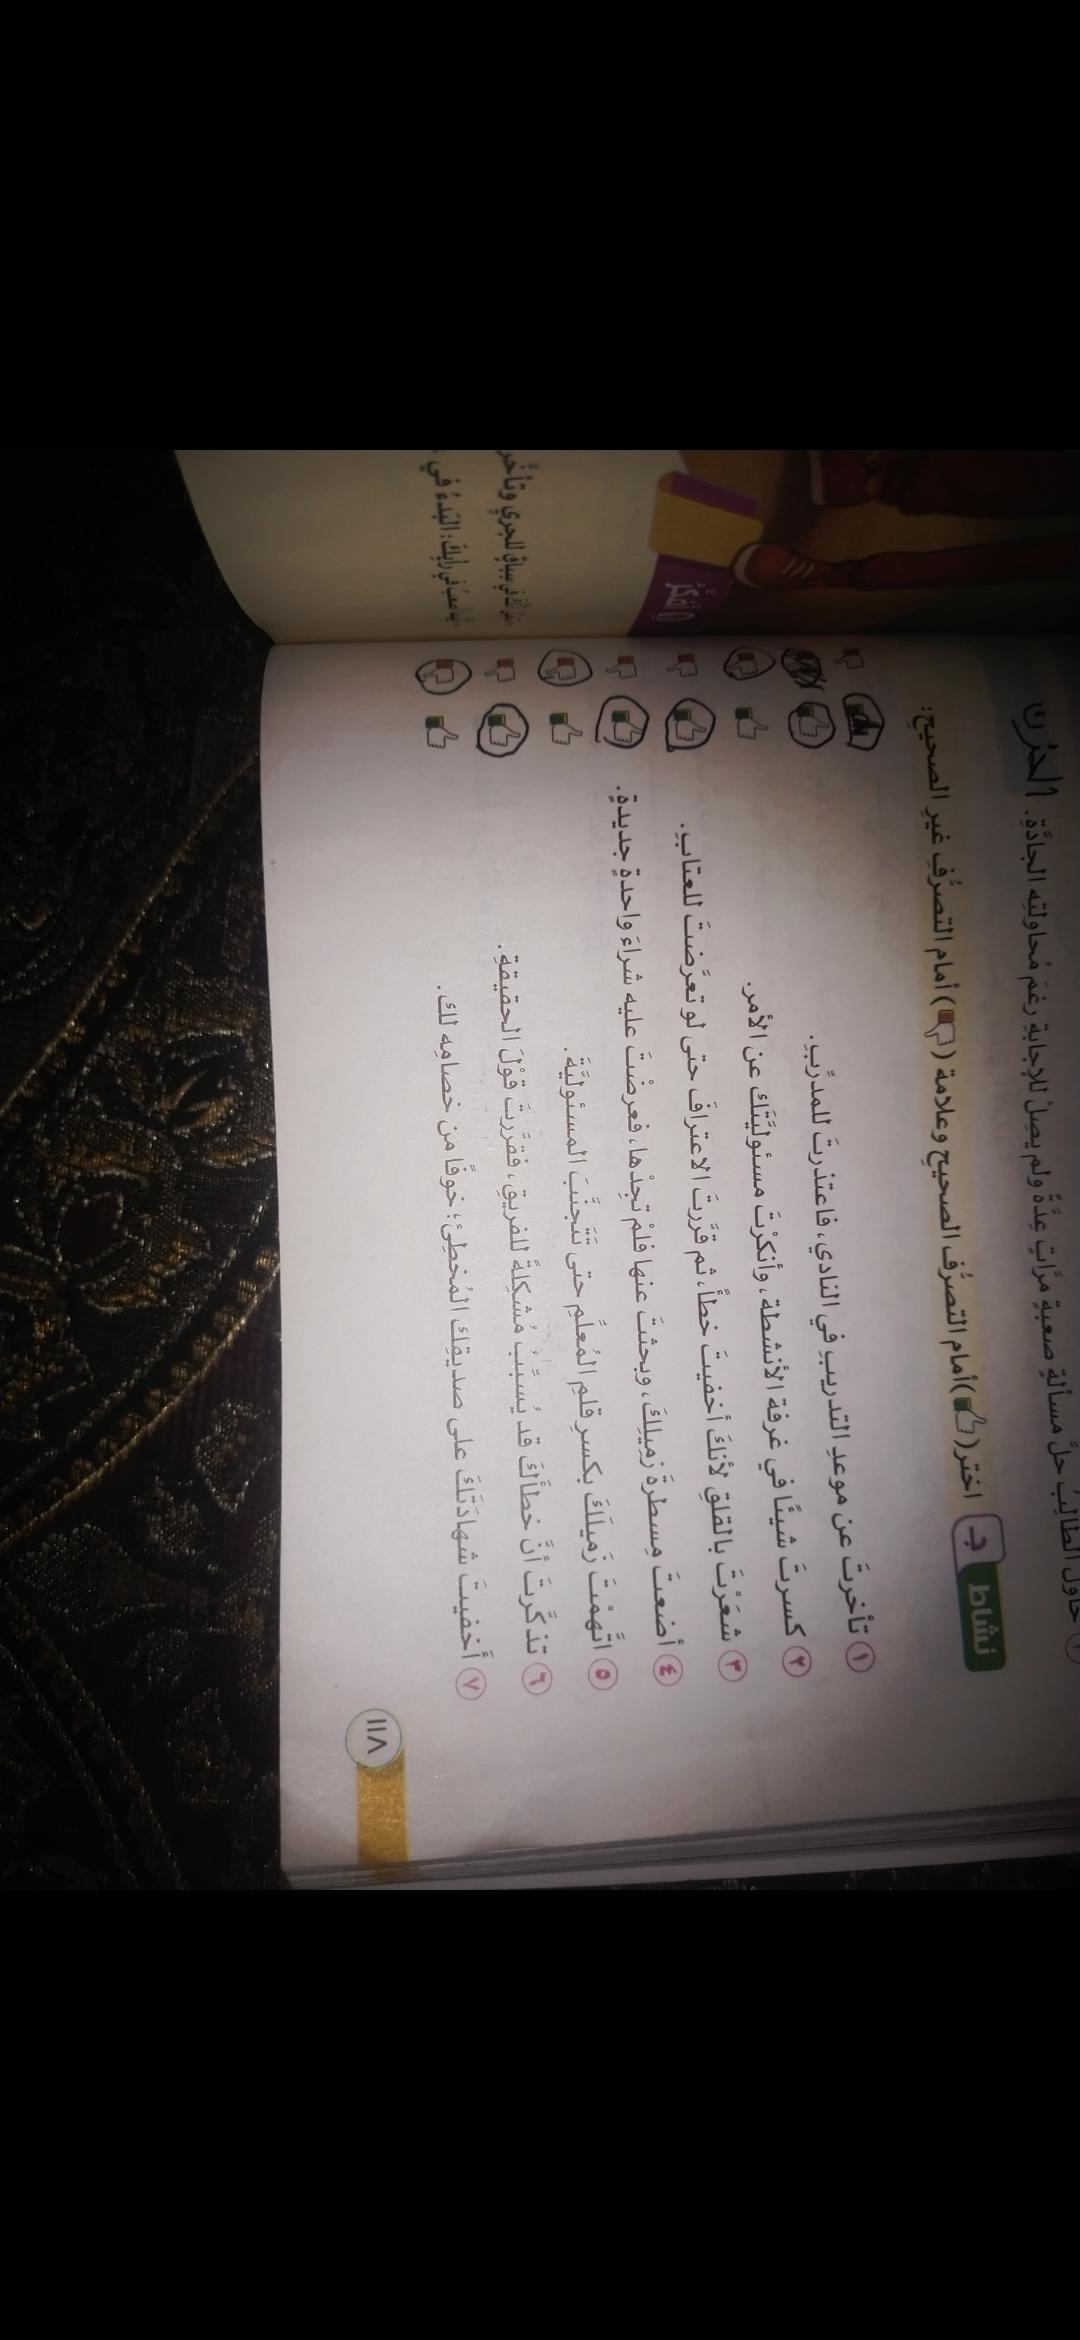 حاول الطالبُ حلَّ مسألةٍ صعبةٍ مرَّاتٍ عِدَّةً ولم يصِلْ للإجابةِ رغمَ مُحاولتِه الجادَّةِ. الحزن
نشاط ج اختر ( ) أمام التصرُّفِ الصحيحِ وعلامة ( ) أمام التصرُّفِ غيرِ الصحيحِ:
١ تأخرتَ عن موعدِ التدريبِ في النادي، فاعتذرتَ للمدرِّبِ.
٢ كسرتَ شيئًا في غرفة الأنشطة، وأنكرْتَ مسئوليَّتَك عن الأمرِ.
٣ شعَرْتَ بالقلقِ لأنكَ أخفيتَ خطأً، ثم قرَّرتَ الاعترافَ حتى لو تعرَّضتَ للعتابِ.
٤ أضعتَ مِسطرةَ زميلِكَ، وبحثتَ عنها فلمْ تجِدْها، فعرضْتَ عليه شراءَ واحدةٍ جديدةٍ.
٥ اتَّهمْتَ زَميلَكَ بكسرِ قلمِ المُعلِّمِ حتى تتَجنَّبَ المسئوليَّةَ.
٦ تذكَّرتَ أنَّ خطأَكَ قد يُسبِّبُ مُشكِلةً للفريقِ، فقرَّرتَ قوْلَ الحقيقةِ.
٧ أخفيتَ شهادَتَكَ على صديقِكَ المُخطِئِ؛ خوفًا من خصامِه لك.
١١٨